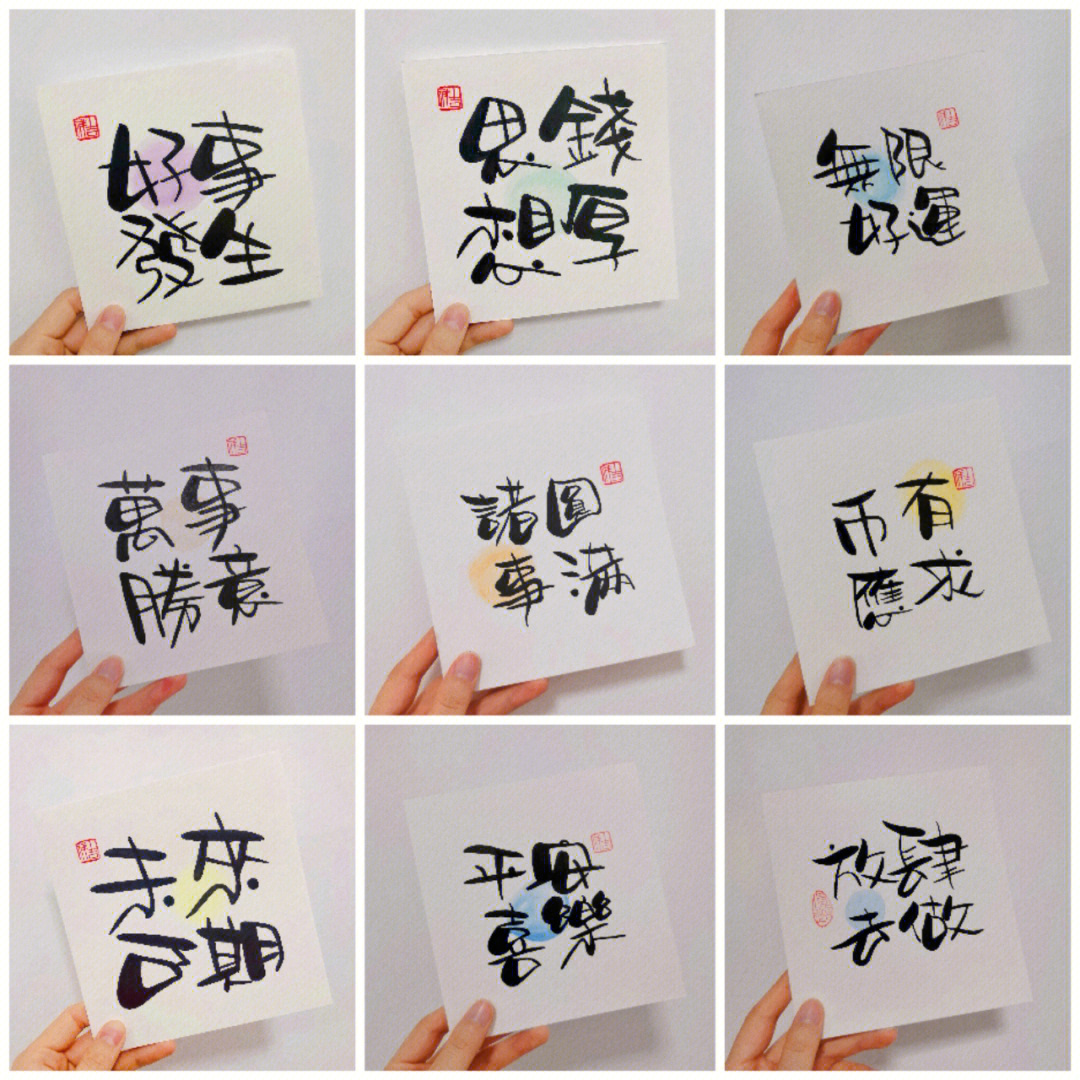 好事
發生
思錢
想厚
無限
好運
萬事
勝意
諸事
圓滿
有求
币應
未來
可期
平安
喜樂
放肆
去做